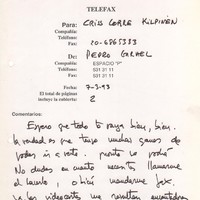 TELEFAX
Para: CRISS CORRE KILPINEN
Compañía:
Teléfono:
Fax: 90-6865333
De: PEDRO GARHEL
Compañía: ESPACIO "P"
Teléfono: 531 21 11
Fax: 531 21 11
Fecha: 7-3-93
El total de páginas
incluyendo la cubierta: 2
Comentarios:
Espero que todo te vaya bien, bien.
la verdad es que tengo muchas ganas de
poder ir a verte. pronto lo podré
No dudes en cuanto necesites llamarme
al taxerto, o bien mandarme fax.